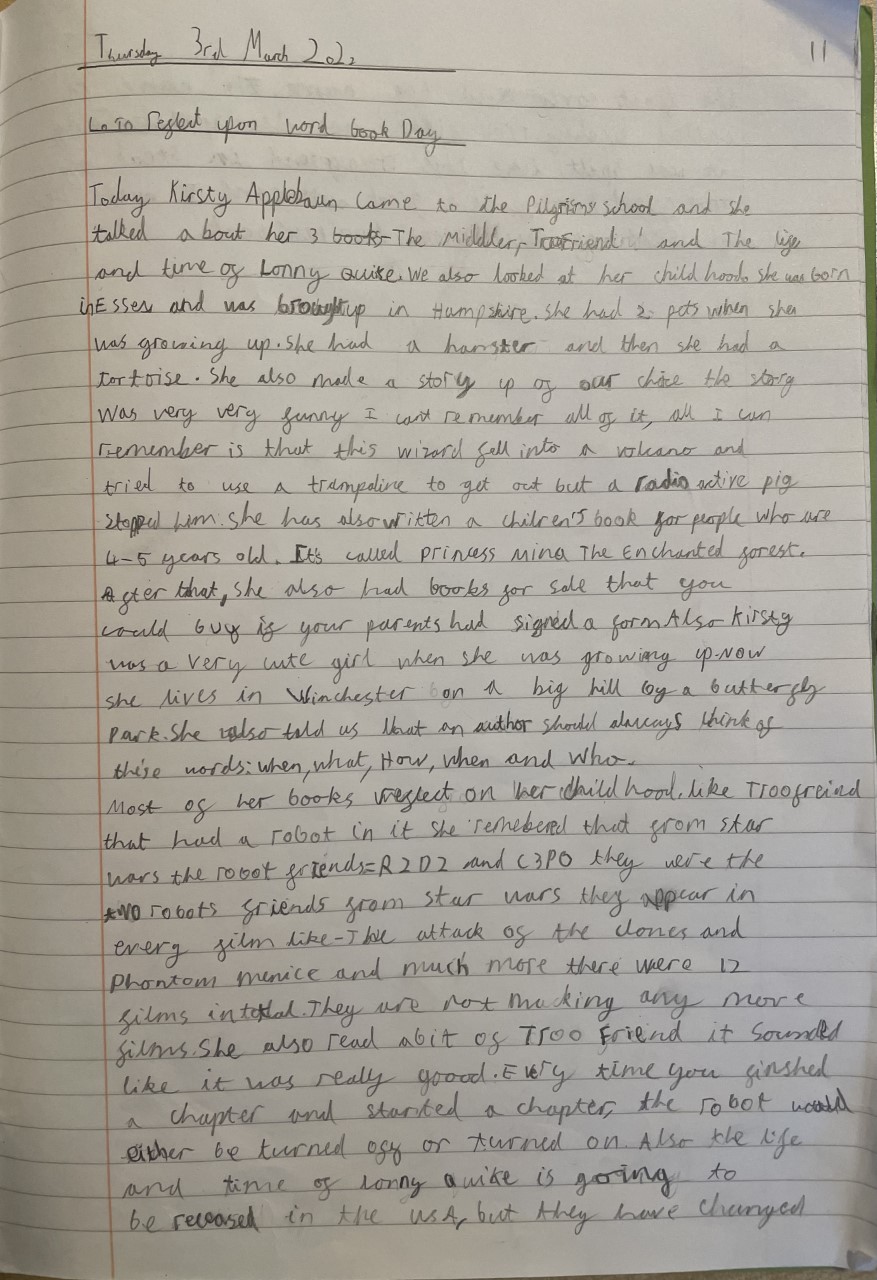 Thursday 3rd March 2022
11
L.o To reflect upon word book Day
Today Kirsty Applebaun came to the Pilgrims' school and she
talked about her 3 books-The Middler, TrooFriend' and The life
and time of Lonny Quike. We also looked at her child hood. She was born
in Essex and was brought up in Hampshire. She had 2 pets when she
was growing up. She had a hamster and then she had a
tortoise. She also made a story up of our choice the story
was very very funny I cant remember all of it, all I can
remember is that this wizard fell into a volcano and
tried to use a trampoline to get out but a radio active pig
stopped him. She has also written a chilren's book for people who are
4-5 years old. It's called princess mina The Enchanted forest.
After that, she also had books for sale that you
could buy if your parents had signed a form Also Kirsty
was a very cute girl when she was growing up. Now
she lives in Winchester on a big hill by a butterfly
park. She also told us that an author should always think of
these words: when, what, How, when and Who.
Most of her books reflect on her child hood, like Troofreind
that had a robot in it she remebered that from star
wars the robot friends=R2D2 and C3PO they were the
two robots friends from star wars they appear in
every film like-The attack of the clones and
Phontom menice and much more there were 12
films in total. They are not macking any more
films. She also read abit of Troo Friend it sounded
like it was realy goood. Every time you finshed
a chapter and started a chapter, the robot would
either be turned off or turned on. Also the life
and time of lonny quike is going to
be receased in the USA, but they have changed